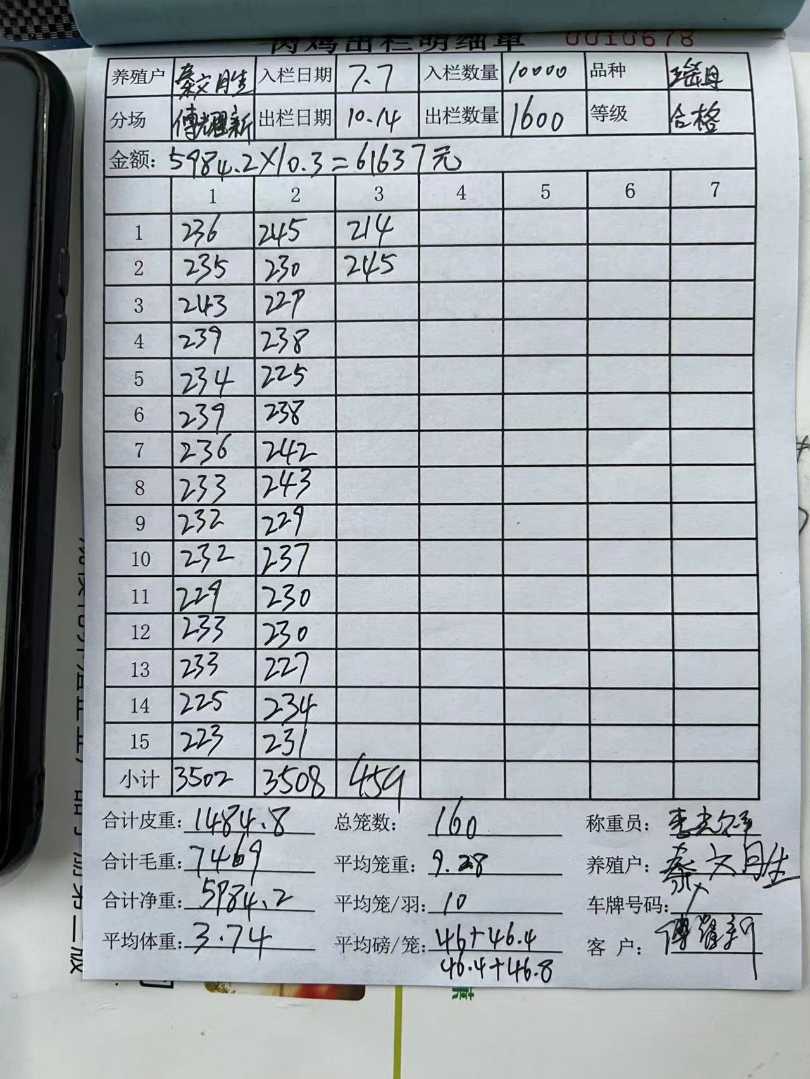 肉鸡出栏明细单 0010678
养殖户 蔡文月生 入栏日期 7.7 入栏数量 10000 品种 瑶丹
分场 傅耀新 出栏日期 10.14 出栏数量 1600 等级 合格
金额: 5984.2×10.3=61637元
1 2 3 4 5 6 7
1 236 245 214
2 235 230 245
3 243 229
4 239 238
5 234 225
6 239 238
7 236 242
8 233 243
9 232 229
10 232 237
11 229 230
12 233 230
13 233 227
14 225 234
15 223 231
小计 3502 3508 459
合计皮重: 1484.8 总笼数: 160 称重员:
合计毛重: 7469 平均笼重: 9.28 养殖户: 蔡文月生
合计净重: 5984.2 平均笼/羽: 10 车牌号码:
平均体重: 3.74 平均磅/笼: 46+46.4 客 户: 傅耀新
46.4+46.8